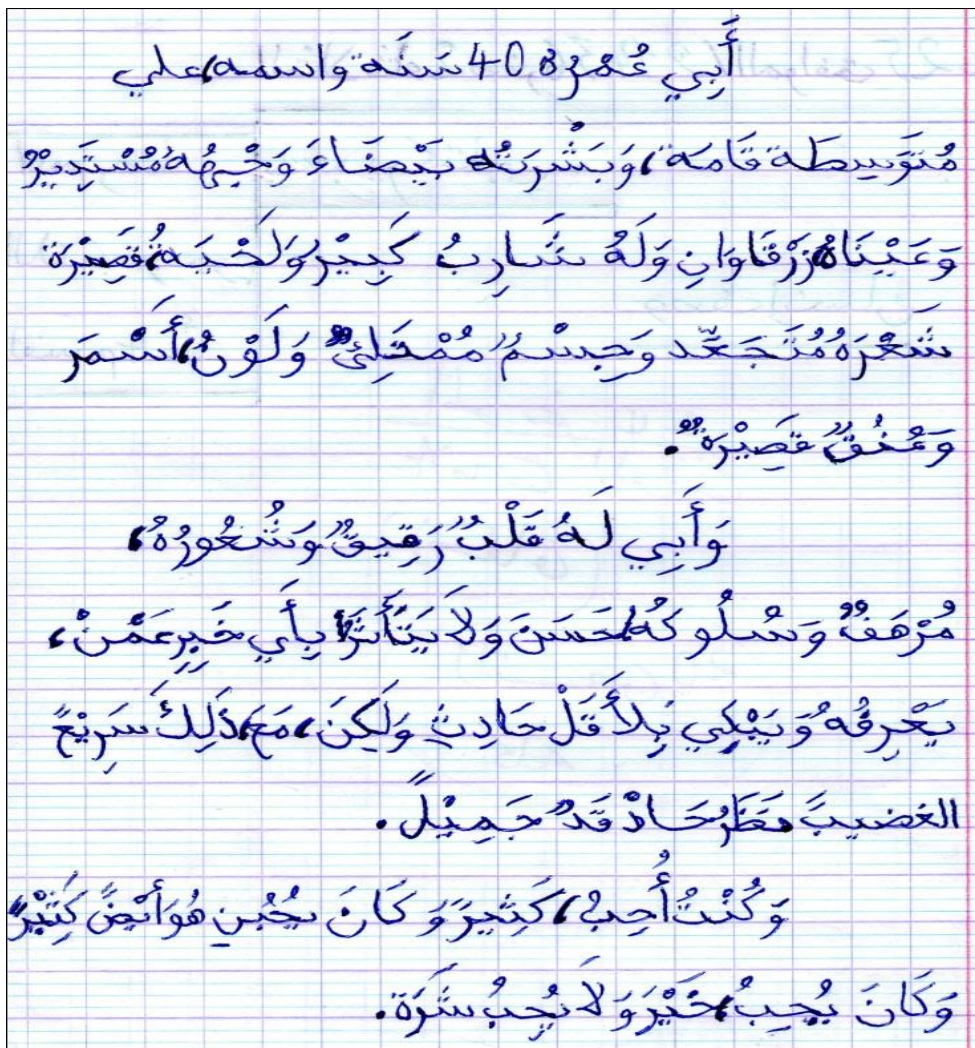 أَبِي عُمْرُهُ 40 سَنَة واسمه علي
مُتَوَسِطَة قَامَة، وَبَشْرَتُه بَيْضَاءَ وَجْهُهُ مُسْتَدِيرْ
وَعَيْنَاهُ زَرْقَاوَانِ وَلَهُ شَارِبُ كَبِيْر وَلَحْيَة قَصِيْرَة
شَعْرَهُ مُتَجَعّد وَجِسْمُ مُمْتَلِئٌ وَلَوْنُ أَسْمَر
وَعُنُقٌ قَصِيْرَةٌ.
وَأَبِي لَهُ قَلْبٌ رَقِيقٌ وَشُعُورُهُ،
مُرْهَفٌ وَسُلُوكُهُ حَسَنَ وَلَا يَتَأَثَرُ بِأَي خَبِرٍ عَمْنْ،
يَعْرِفُهُ وَيَبْكِي بِلأَقَلْ حَادِثِ وَلَكِنَ، مَعَ ذَلِكَ سَرِيْعً
الغضيبَ حَادْ قَدٌ جَمِيْلً.
وَكُنْتُ أُحِبُ، كَثِيرَ وَكَانَ يُحُبْنِ هُوَ أَيْضً كَثِيْرً
وَكَانَ يُحِبُ خَيْرَ وَلَا يُحِبُ شَرَة.